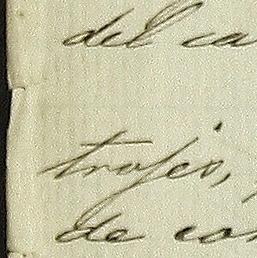 del ca
trafeio,
de con